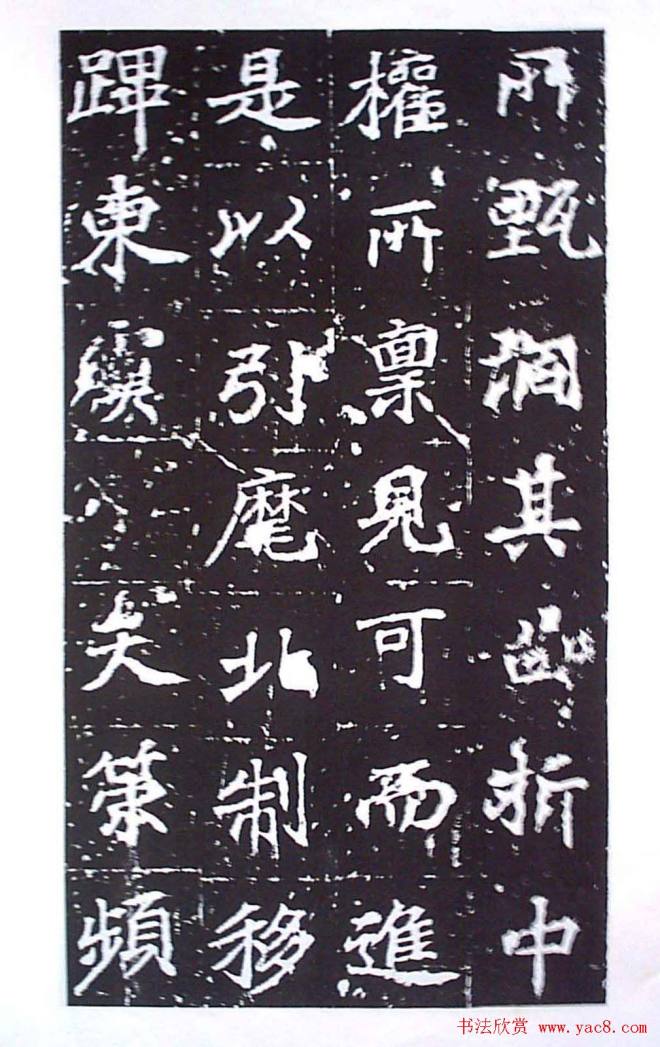 所甄洞其幽折中
權所稟見可而進
是以引麾北制移
蹕東 矢策頻
书法欣赏 www.yac8.com